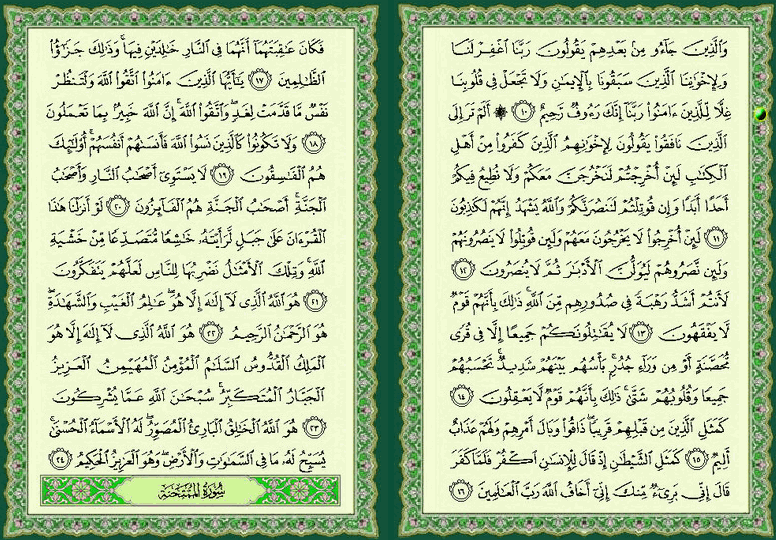 وَٱلَّذِينَ جَآءُو مِنۢ بَعْدِهِمْ يَقُولُونَ رَبَّنَا ٱغْفِرْ لَنَا
وَلِإِخْوَٰنِنَا ٱلَّذِينَ سَبَقُونَا بِٱلْإِيمَٰنِ وَلَا تَجْعَلْ فِى قُلُوبِنَا
غِلًّا لِّلَّذِينَ ءَامَنُوا۟ رَبَّنَآ إِنَّكَ رَءُوفٌ رَّحِيمٌ ١٠ ۞ أَلَمْ تَرَ إِلَى
ٱلَّذِينَ نَافَقُوا۟ يَقُولُونَ لِإِخْوَٰنِهِمُ ٱلَّذِينَ كَفَرُوا۟ مِنْ أَهْلِ
ٱلْكِتَٰبِ لَئِنْ أُخْرِجْتُمْ لَنَخْرُجَنَّ مَعَكُمْ وَلَا نُطِيعُ فِيكُمْ
أَحَدًا أَبَدًا وَإِن قُوتِلْتُمْ لَنَنصُرَنَّكُمْ وَٱللَّهُ يَشْهَدُ إِنَّهُمْ لَكَٰذِبُونَ
١١ لَئِنْ أُخْرِجُوا۟ لَا يَخْرُجُونَ مَعَهُمْ وَلَئِن قُوتِلُوا۟ لَا يَنصُرُونَهُمْ
وَلَئِن نَّصَرُوهُمْ لَيُوَلُّنَّ ٱلْأَدْبَٰرَ ثُمَّ لَا يُنصَرُونَ ١٢
لَأَنتُمْ أَشَدُّ رَهْبَةً فِى صُدُورِهِم مِّنَ ٱللَّهِ ۚ ذَٰلِكَ بِأَنَّهُمْ قَوْمٌ
لَّا يَفْقَهُونَ ١٣ لَا يُقَٰتِلُونَكُمْ جَمِيعًا إِلَّا فِى قُرًى
مُّحَصَّنَةٍ أَوْ مِن وَرَآءِ جُدُرٍۭ ۚ بَأْسُهُم بَيْنَهُمْ شَدِيدٌ ۚ تَحْسَبُهُمْ
جَمِيعًا وَقُلُوبُهُمْ شَتَّىٰ ۚ ذَٰلِكَ بِأَنَّهُمْ قَوْمٌ لَّا يَعْقِلُونَ ١٤
كَمَثَلِ ٱلَّذِينَ مِن قَبْلِهِمْ قَرِيبًا ۖ ذَاقُوا۟ وَبَالَ أَمْرِهِمْ وَلَهُمْ عَذَابٌ
أَلِيمٌ ١٥ كَمَثَلِ ٱلشَّيْطَٰنِ إِذْ قَالَ لِلْإِنسَٰنِ ٱكْفُرْ فَلَمَّا كَفَرَ
قَالَ إِنِّى بَرِىٓءٌ مِّنكَ إِنِّىٓ أَخَافُ ٱللَّهَ رَبَّ ٱلْعَٰلَمِينَ ١٦
فَكَانَ عَٰقِبَتَهُمَآ أَنَّهُمَا فِى ٱلنَّارِ خَٰلِدَيْنِ فِيهَا ۚ وَذَٰلِكَ جَزَٰٓؤُا۟
ٱلظَّٰلِمِينَ ١٧ يَٰٓأَيُّهَا ٱلَّذِينَ ءَامَنُوا۟ ٱتَّقُوا۟ ٱللَّهَ وَلْتَنظُرْ
نَفْسٌ مَّا قَدَّمَتْ لِغَدٍ ۖ وَٱتَّقُوا۟ ٱللَّهَ ۚ إِنَّ ٱللَّهَ خَبِيرٌۢ بِمَا تَعْمَلُونَ
١٨ وَلَا تَكُونُوا۟ كَٱلَّذِينَ نَسُوا۟ ٱللَّهَ فَأَنسَىٰهُمْ أَنفُسَهُمْ ۚ أُو۟لَٰٓئِكَ
هُمُ ٱلْفَٰسِقُونَ ١٩ لَا يَسْتَوِىٓ أَصْحَٰبُ ٱلنَّارِ وَأَصْحَٰبُ
ٱلْجَنَّةِ ۚ أَصْحَٰبُ ٱلْجَنَّةِ هُمُ ٱلْفَآئِزُونَ ٢٠ لَوْ أَنزَلْنَا هَٰذَا
ٱلْقُرْءَانَ عَلَىٰ جَبَلٍ لَّرَأَيْتَهُۥ خَٰشِعًا مُّتَصَدِّعًا مِّنْ خَشْيَةِ
ٱللَّهِ ۚ وَتِلْكَ ٱلْأَمْثَٰلُ نَضْرِبُهَا لِلنَّاسِ لَعَلَّهُمْ يَتَفَكَّرُونَ
٢١ هُوَ ٱللَّهُ ٱلَّذِى لَآ إِلَٰهَ إِلَّا هُوَ ۖ عَٰلِمُ ٱلْغَيْبِ وَٱلشَّهَٰدَةِ ۖ
هُوَ ٱلرَّحْمَٰنُ ٱلرَّحِيمُ ٢٢ هُوَ ٱللَّهُ ٱلَّذِى لَآ إِلَٰهَ إِلَّا هُوَ
ٱلْمَلِكُ ٱلْقُدُّوسُ ٱلسَّلَٰمُ ٱلْمُؤْمِنُ ٱلْمُهَيْمِنُ ٱلْعَزِيزُ
ٱلْجَبَّارُ ٱلْمُتَكَبِّرُ ۚ سُبْحَٰنَ ٱللَّهِ عَمَّا يُشْرِكُونَ
٢٣ هُوَ ٱللَّهُ ٱلْخَٰلِقُ ٱلْبَارِئُ ٱلْمُصَوِّرُ ۖ لَهُ ٱلْأَسْمَآءُ ٱلْحُسْنَىٰ ۚ
يُسَبِّحُ لَهُۥ مَا فِى ٱلسَّمَٰوَٰتِ وَٱلْأَرْضِ ۖ وَهُوَ ٱلْعَزِيزُ ٱلْحَكِيمُ ٢٤
سُورَةُ المُمْتَحنَةِ